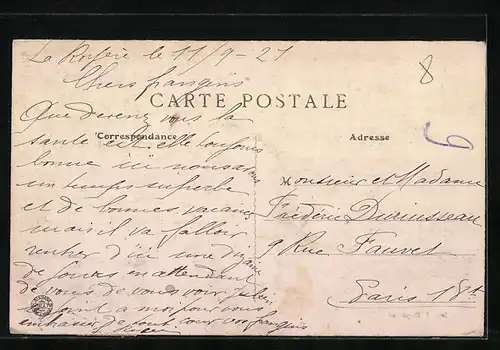 La Rosière le 11/9-21
Chers frangins
CARTE POSTALE
Correspondance
Adresse
Que devenez vous la
sante est elle toujours
bonne ici nous avons
un temps superbe
et de bonnes vacances
mais il va falloir
rentrer d'ici une dizaine
de jours en attendant
de vous voir
a moi pour vous
embrasser de tout cœur vos frangins
8
6
Monsieur et Madame
Frédéric
9 Rue Fauvet
Paris 18e